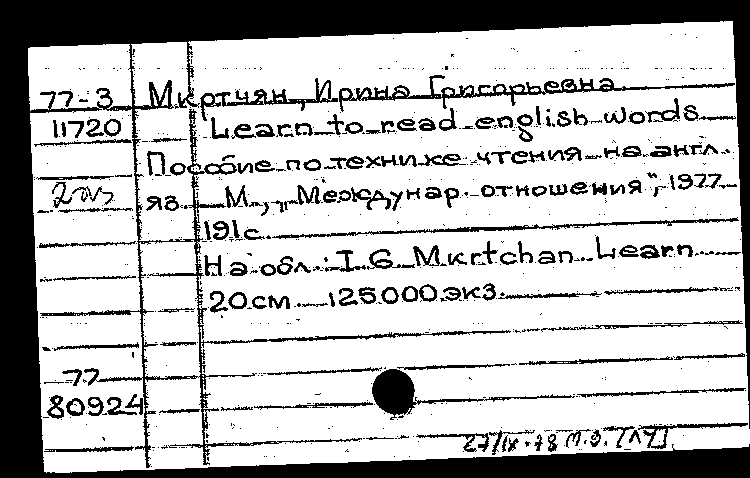 77-3 Мкртчян, Ирина Григорьевна
11720 Learn to read english words
Пособие по технике чтения на англ.
2 яз. М., „Междунар. отношения", 1977
191с.
На обл.: I G Mkrtchan Learn
20см 125000 экз.
77
80924
27/IX-78